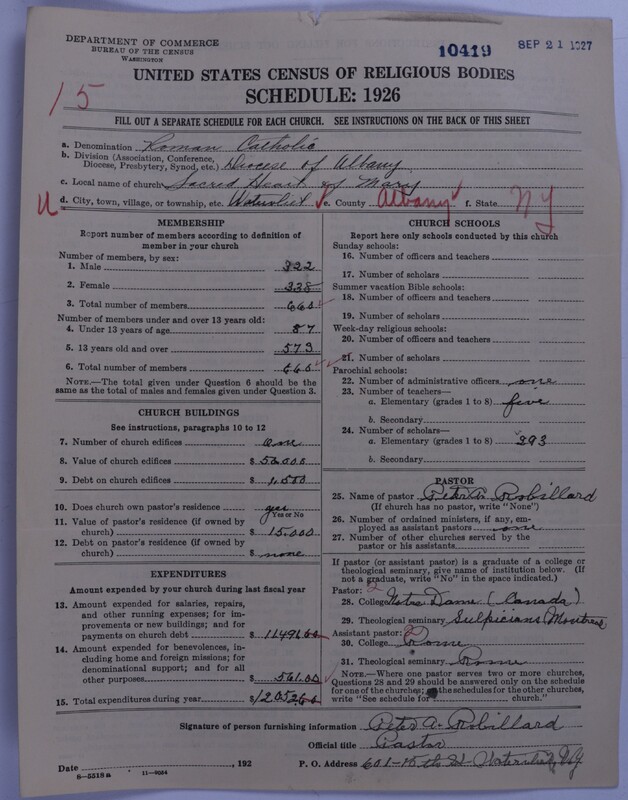 DEPARTMENT OF COMMERCE
BUREAU OF THE CENSUS
WASHINGTON
10419
SEP 21 1927
UNITED STATES CENSUS OF RELIGIOUS BODIES
SCHEDULE: 1926
15
FILL OUT A SEPARATE SCHEDULE FOR EACH CHURCH. SEE INSTRUCTIONS ON THE BACK OF THIS SHEET
a. Denomination Roman Catholic
b. Division (Association, Conference, Diocese, Presbytery, Synod, etc.) Diocese of Albany
c. Local name of church Sacred Heart of Mary
d. City, town, village, or township, etc. Watervliet e. County Albany f. State NY
MEMBERSHIP
Report number of members according to definition of
member in your church
Number of members, by sex:
1. Male 322
2. Female 338
3. Total number of members 660
Number of members under and over 13 years old:
4. Under 13 years of age 87
5. 13 years old and over 573
6. Total number of members 660
NOTE.—The total given under Question 6 should be the
same as the total of males and females given under Question 3.
CHURCH BUILDINGS
See instructions, paragraphs 10 to 12
7. Number of church edifices one
8. Value of church edifices $
9. Debt on church edifices $
10. Does church own pastor's residence yes
Yes or No
11. Value of pastor's residence (if owned by
church) $ 15,000
12. Debt on pastor's residence (if owned by
church) $ none
EXPENDITURES
Amount expended by your church during last fiscal year
13. Amount expended for salaries, repairs,
and other running expenses; for im-
provements or new buildings; and for
payments on church debt $
14. Amount expended for benevolences, in-
cluding home and foreign missions; for
denominational support; and for all
other purposes $ 561.00
15. Total expenditures during year $
CHURCH SCHOOLS
Report here only schools conducted by this church
Sunday schools:
16. Number of officers and teachers
17. Number of scholars
Summer vacation Bible schools:
18. Number of officers and teachers
19. Number of scholars
Week-day religious schools:
20. Number of officers and teachers
21. Number of scholars
Parochial schools:
22. Number of administrative officers one
23. Number of teachers—
a. Elementary (grades 1 to 8) five
b. Secondary
24. Number of scholars—
a. Elementary (grades 1 to 8) 293
b. Secondary
PASTOR
25. Name of pastor Peter A. Robillard
(If church has no pastor, write "None")
26. Number of ordained ministers, if any, em-
ployed as assistant pastors one
27. Number of other churches served by the
pastor or his assistants
If pastor (or assistant pastor) is a graduate of a college or
theological seminary, give name of institution below. (If
not a graduate, write "No" in the space indicated.)
Pastor: 2
28. College Notre Dame (Canada)
29. Theological seminary Sulpicians Montreal
Assistant pastor: 2
30. College Rome
31. Theological seminary Rome
NOTE.—Where one pastor serves two or more churches,
Questions 28 and 29 should be answered only on the schedule
for one of the churches; the schedules for the other churches,
write "See schedule for church."
Signature of person furnishing information Peter A. Robillard
Official title Pastor
Date , 192
P. O. Address 601-15th St Watervliet, NY
8-5518a 11-9034